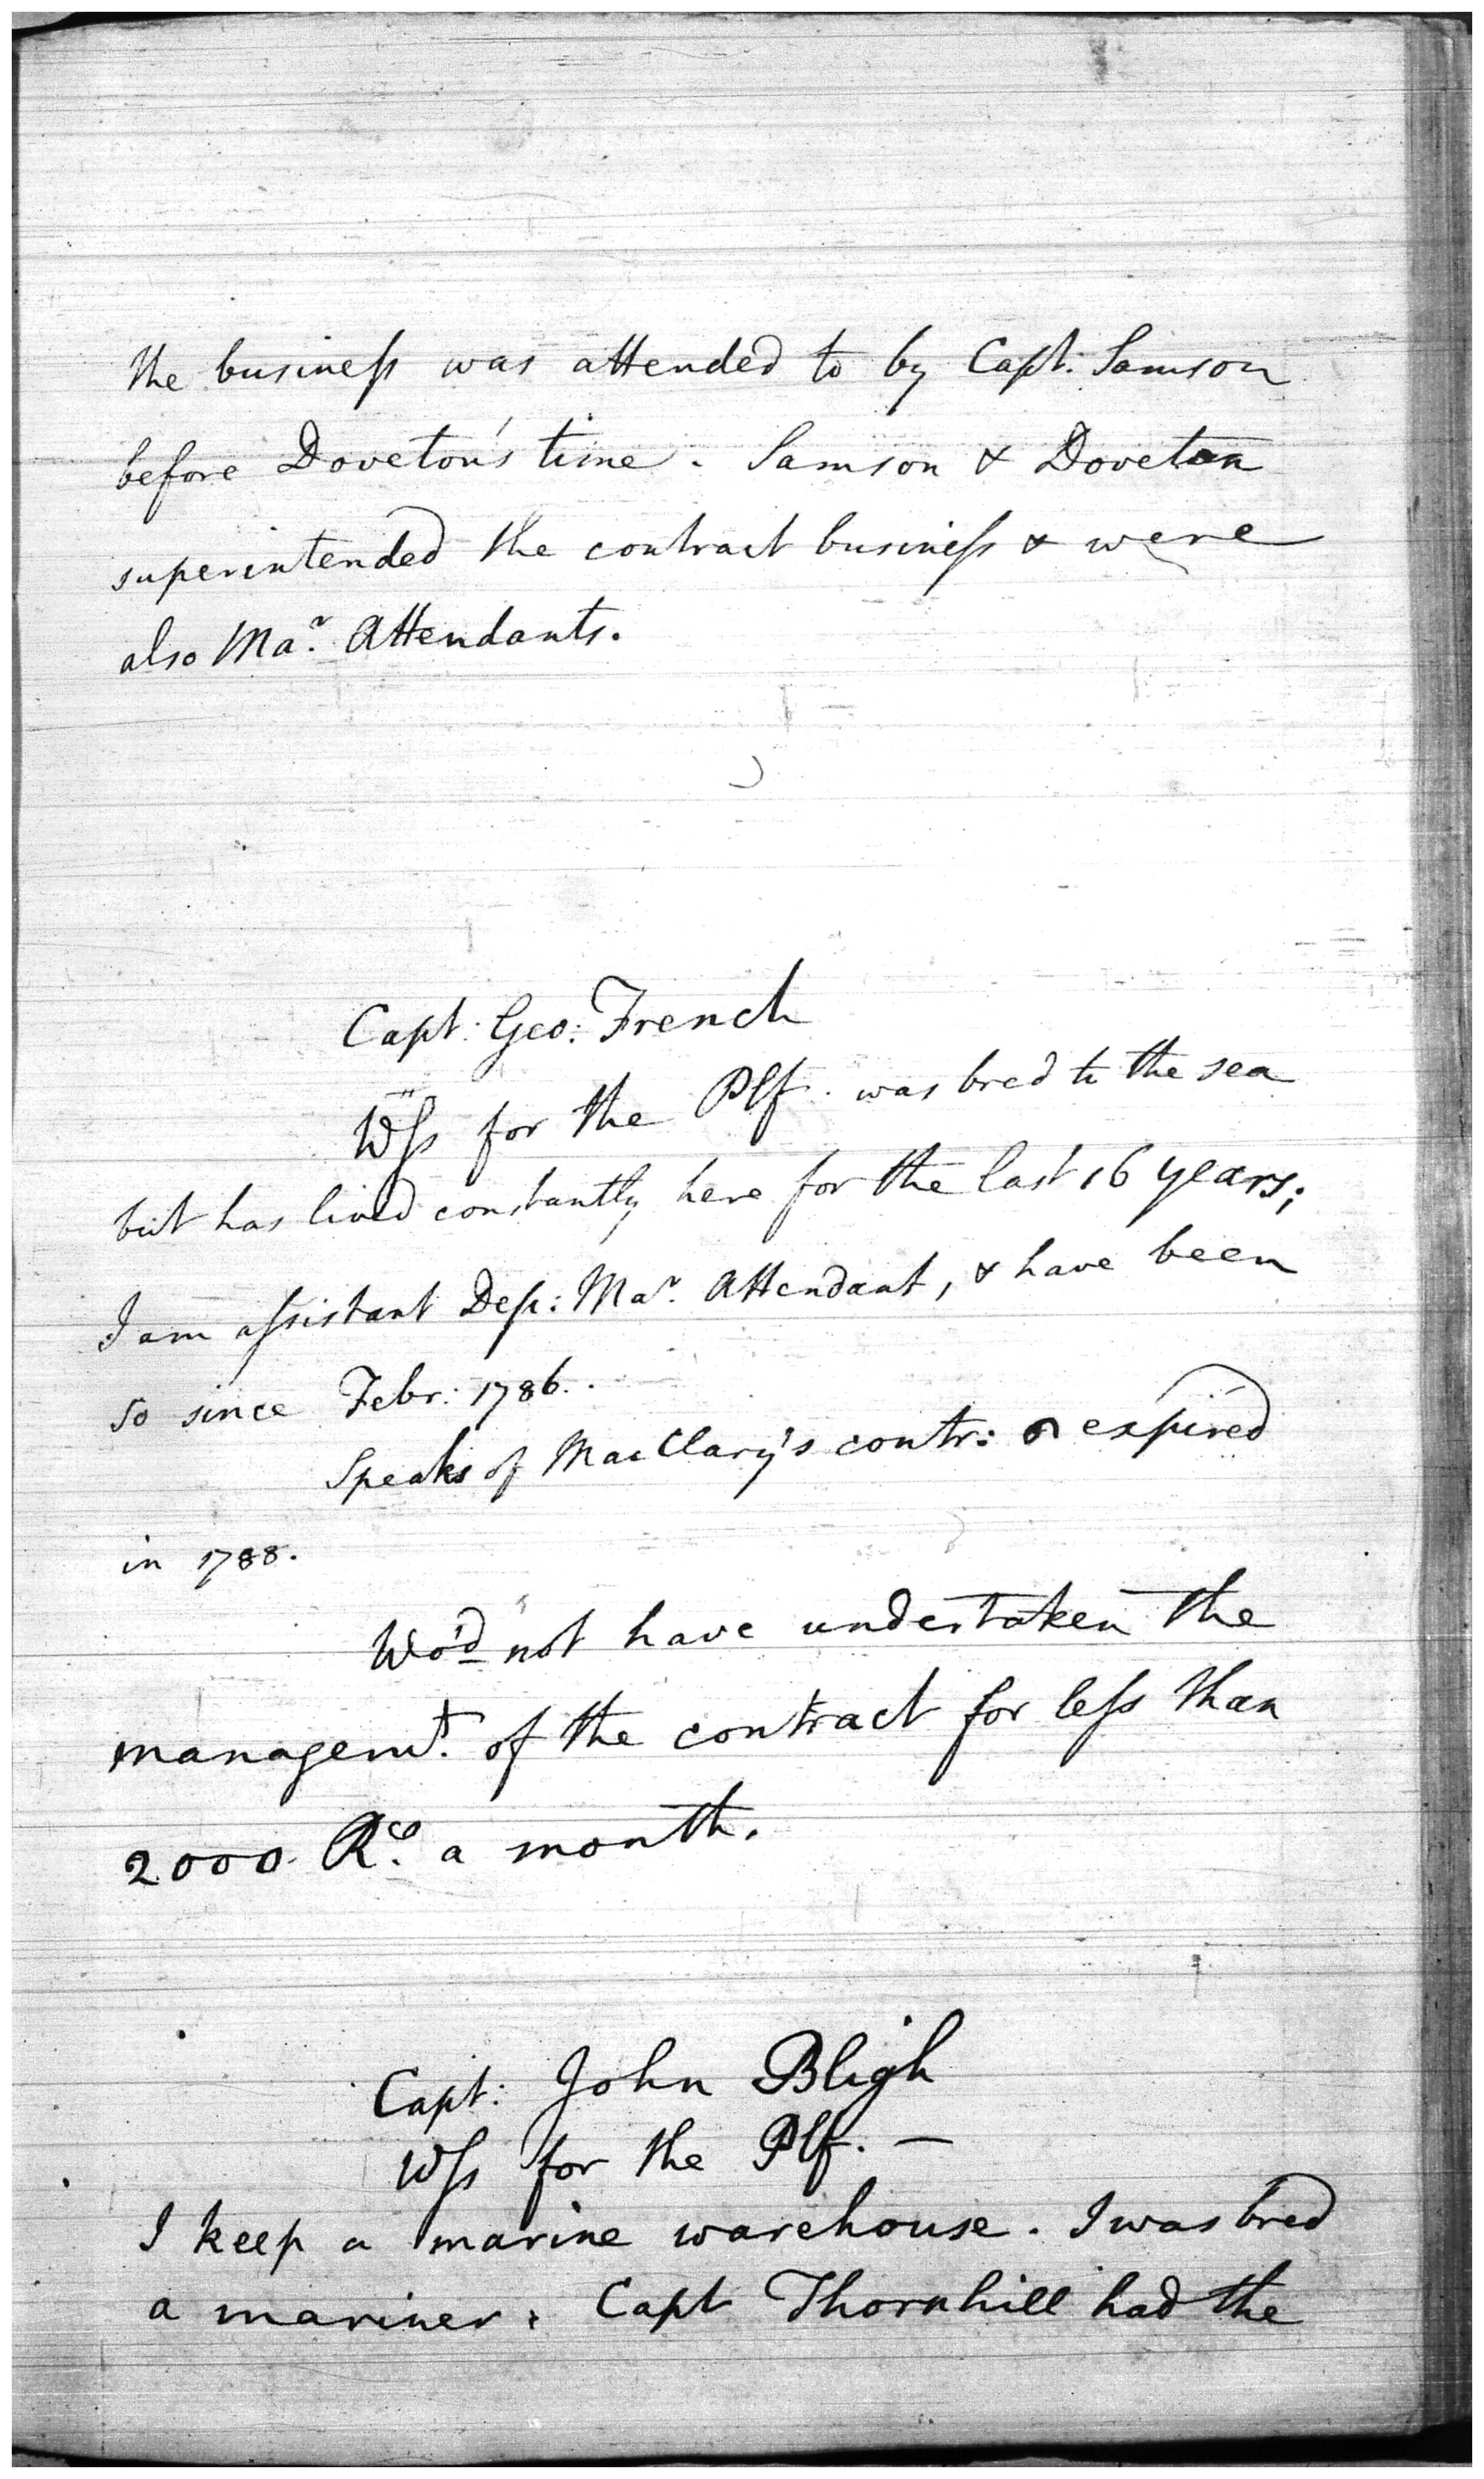 the business was attended to by Capt: Samson
before Doveton's time. Samson & Doveton
superintended the contract business & were
also Mar. Attendants.
Capt: Geo: French
Wss for the Plf. was bred to the sea
but has lived constantly here for the last 16 years;
I am assistant Dep: Mar. Attendant, & have been
so since Febr: 1786.
Speaks of MacClary's contr: expired
in 1788.
Wo'd not have undertaken the
managemt. of the contract for less than
2000 Rs. a month.
Capt: John Bligh
Wss for the Plf. —
I keep a marine warehouse. I was bred
a mariner. Capt Thornhill had the